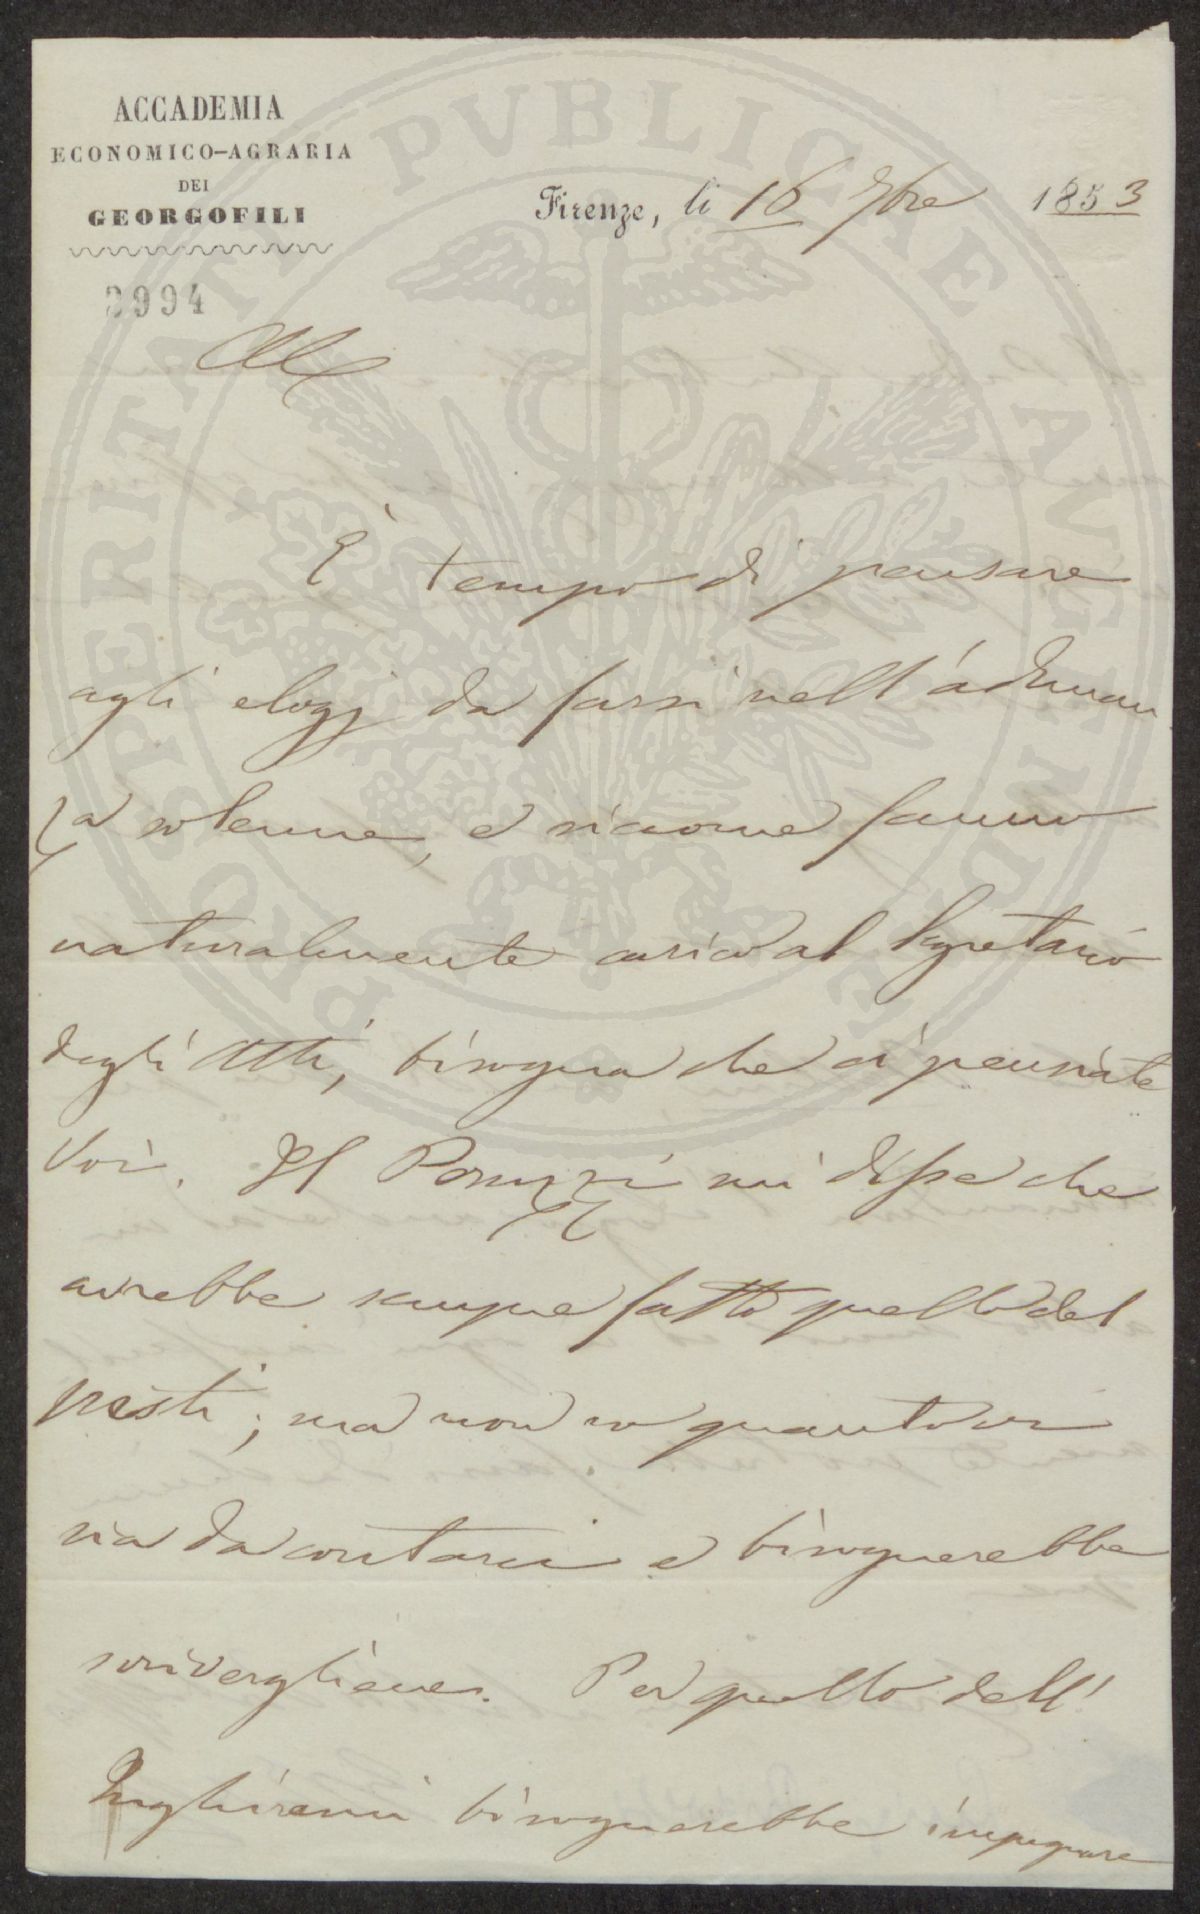 ACCADEMIA
ECONOMICO-AGRARIA
DEI
GEORGOFILI
Firenze, li 16 7bre 1853
2994
PROSPERITATI PVBLICAE AVGENDAE
È tempo di pensare
agli elogj da farsi nell'adunan
za solenne, e siccome fanno
naturalmente carico al Segretario
degli Atti, bisogna che ci pensiate
Voi. Il Peruzzi mi disse che
avrebbe sempre fatto quello del
Pesti; ma non so quanto vi
sia da contarci e bisognerebbe
scrivergliene. Per quello dell'
Inghirami bisognerebbe impegnare